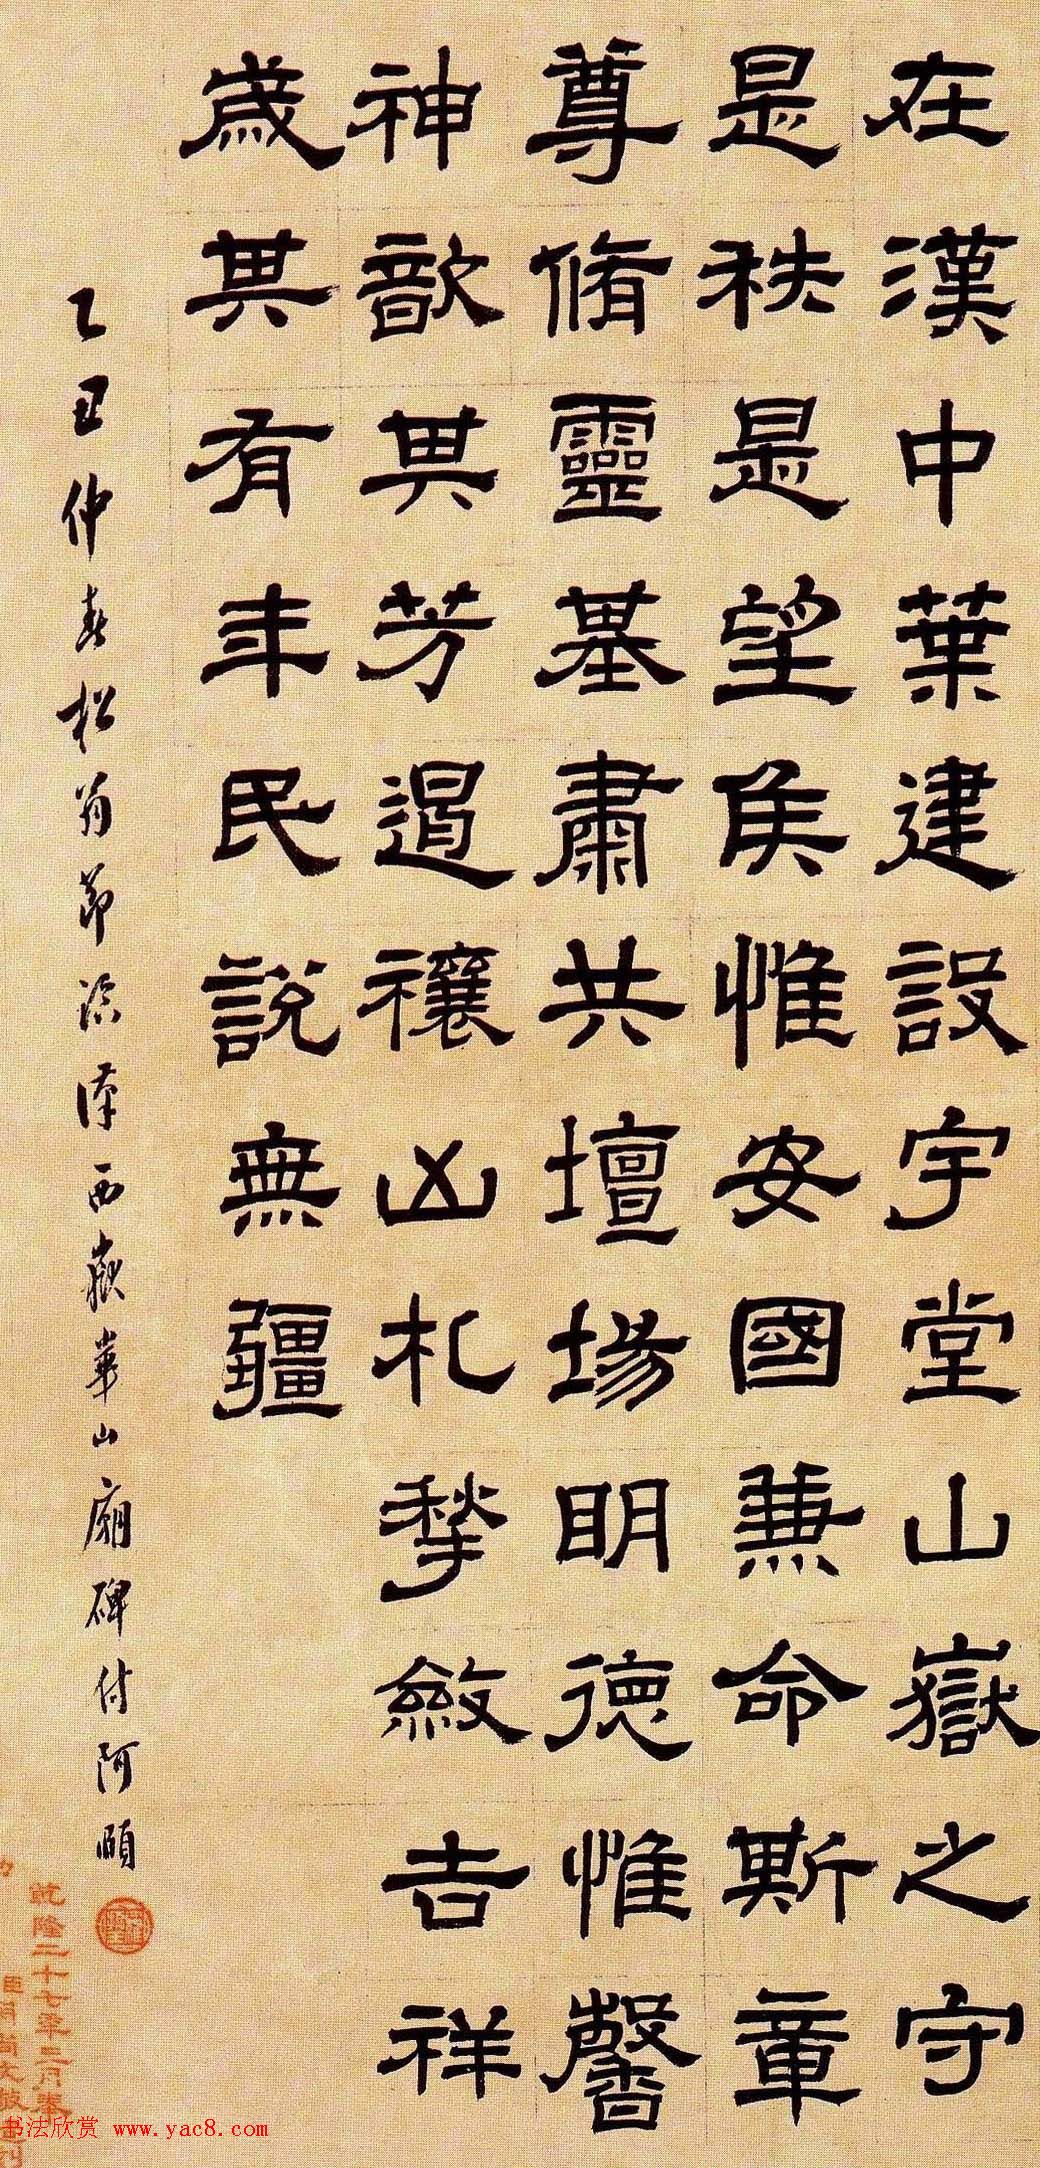 在漢中葉建設宇堂山嶽之守
是秩是望侯惟安國兼命斯章
尊脩靈基肅共壇場明德惟馨
神歆其芳遏禳凶札揫斂吉祥
歲其有年民說無疆
乙丑仲春松翁節臨漢西嶽華山廟碑付阿頤
乾隆二十七年二月奉
书法欣赏 www.yac8.com